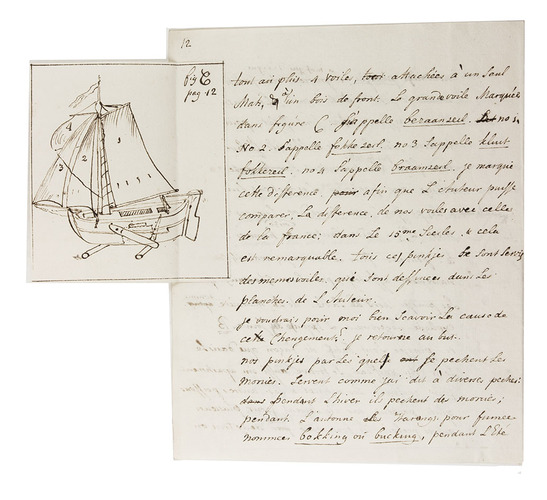 fig C
pag 12
4
3
2
1
12
tout au plus 4 voiles, attachées à un seul
Mah, & d'un bois de front. Le grande voile Marquée
dans figure C s'appelle bezaanzeil. no 1.
No 2. s'appelle fokkezeil. no 3 s'appelle kluit
fokkezeil. no 4 s'appelle braamzeil. je marque
cette difference afin que L'Auteur puisse
comparer La difference de nos voiles avec celle
de la france; dans le 15me Siecles. & cela
est remarquable. tous ces pinkjes se sont servis
des memes voiles, qui sont dessinees dans les
planches de L'Auteur.
je voudrais pour moi bien scavoir La cause de
cette Changement. je retourne au but.
nos pinkjes par les quels se pechent Les
morues. servent comme j'ai dit à diverses peches:
pendant L'hiver ils pechent des morues;
pendant L'autonne Les Harengs pour fumee
nommees bokking ou bucking, pendant L'Eté